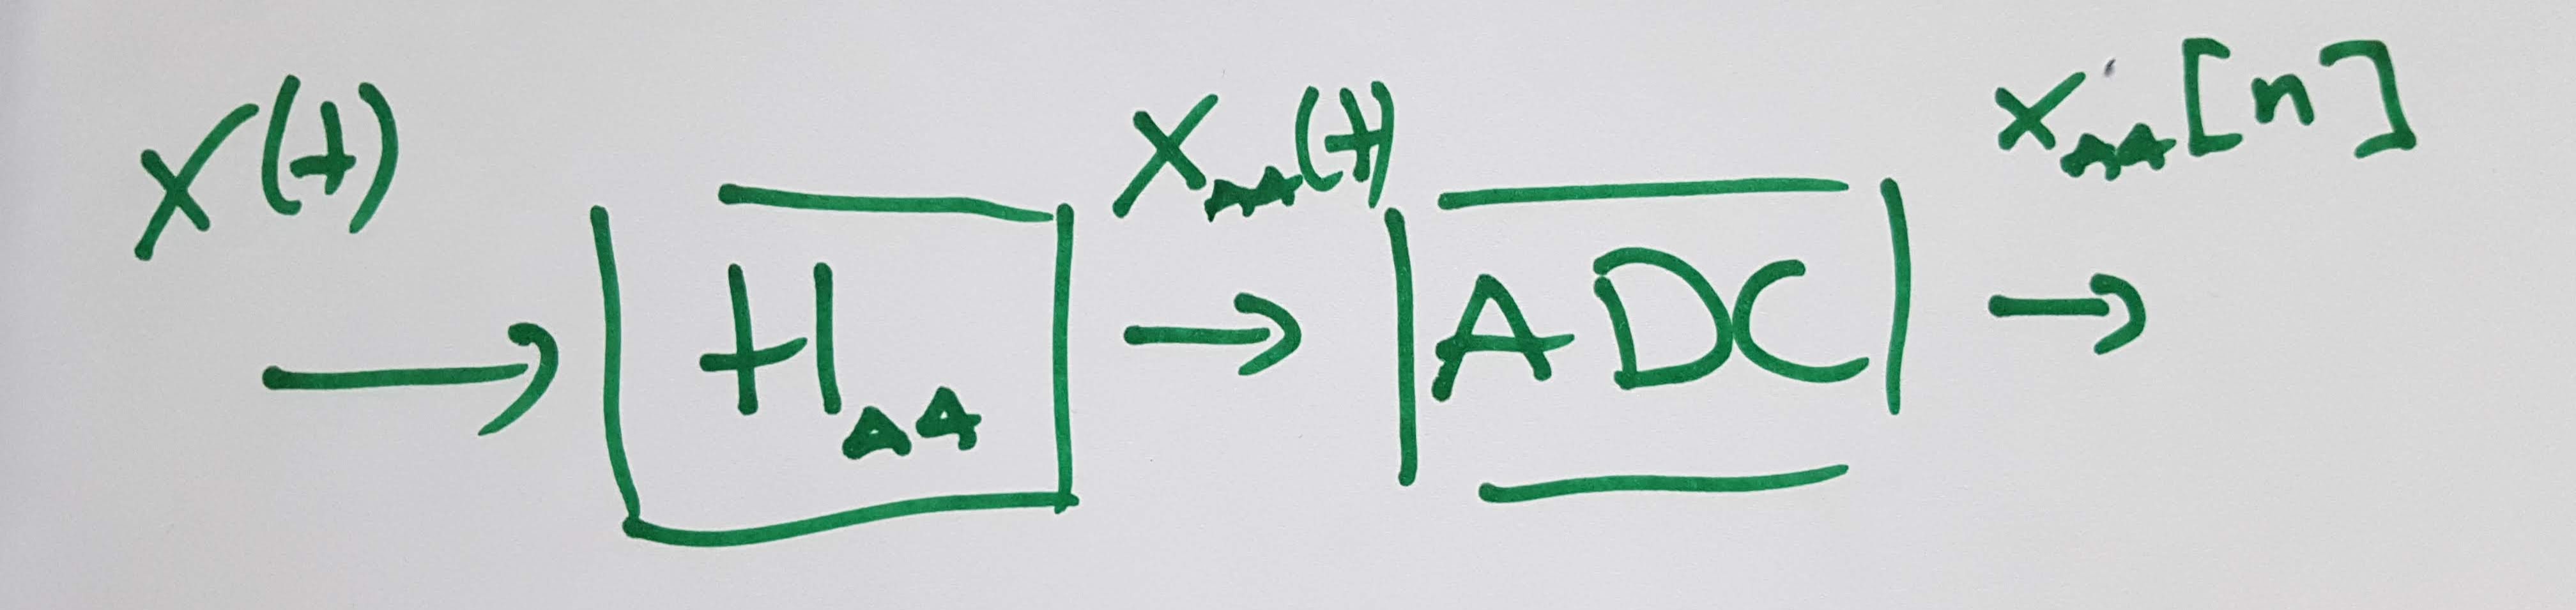 x(t)
H_AA
x_AA(t)
ADC
x_AA[n]